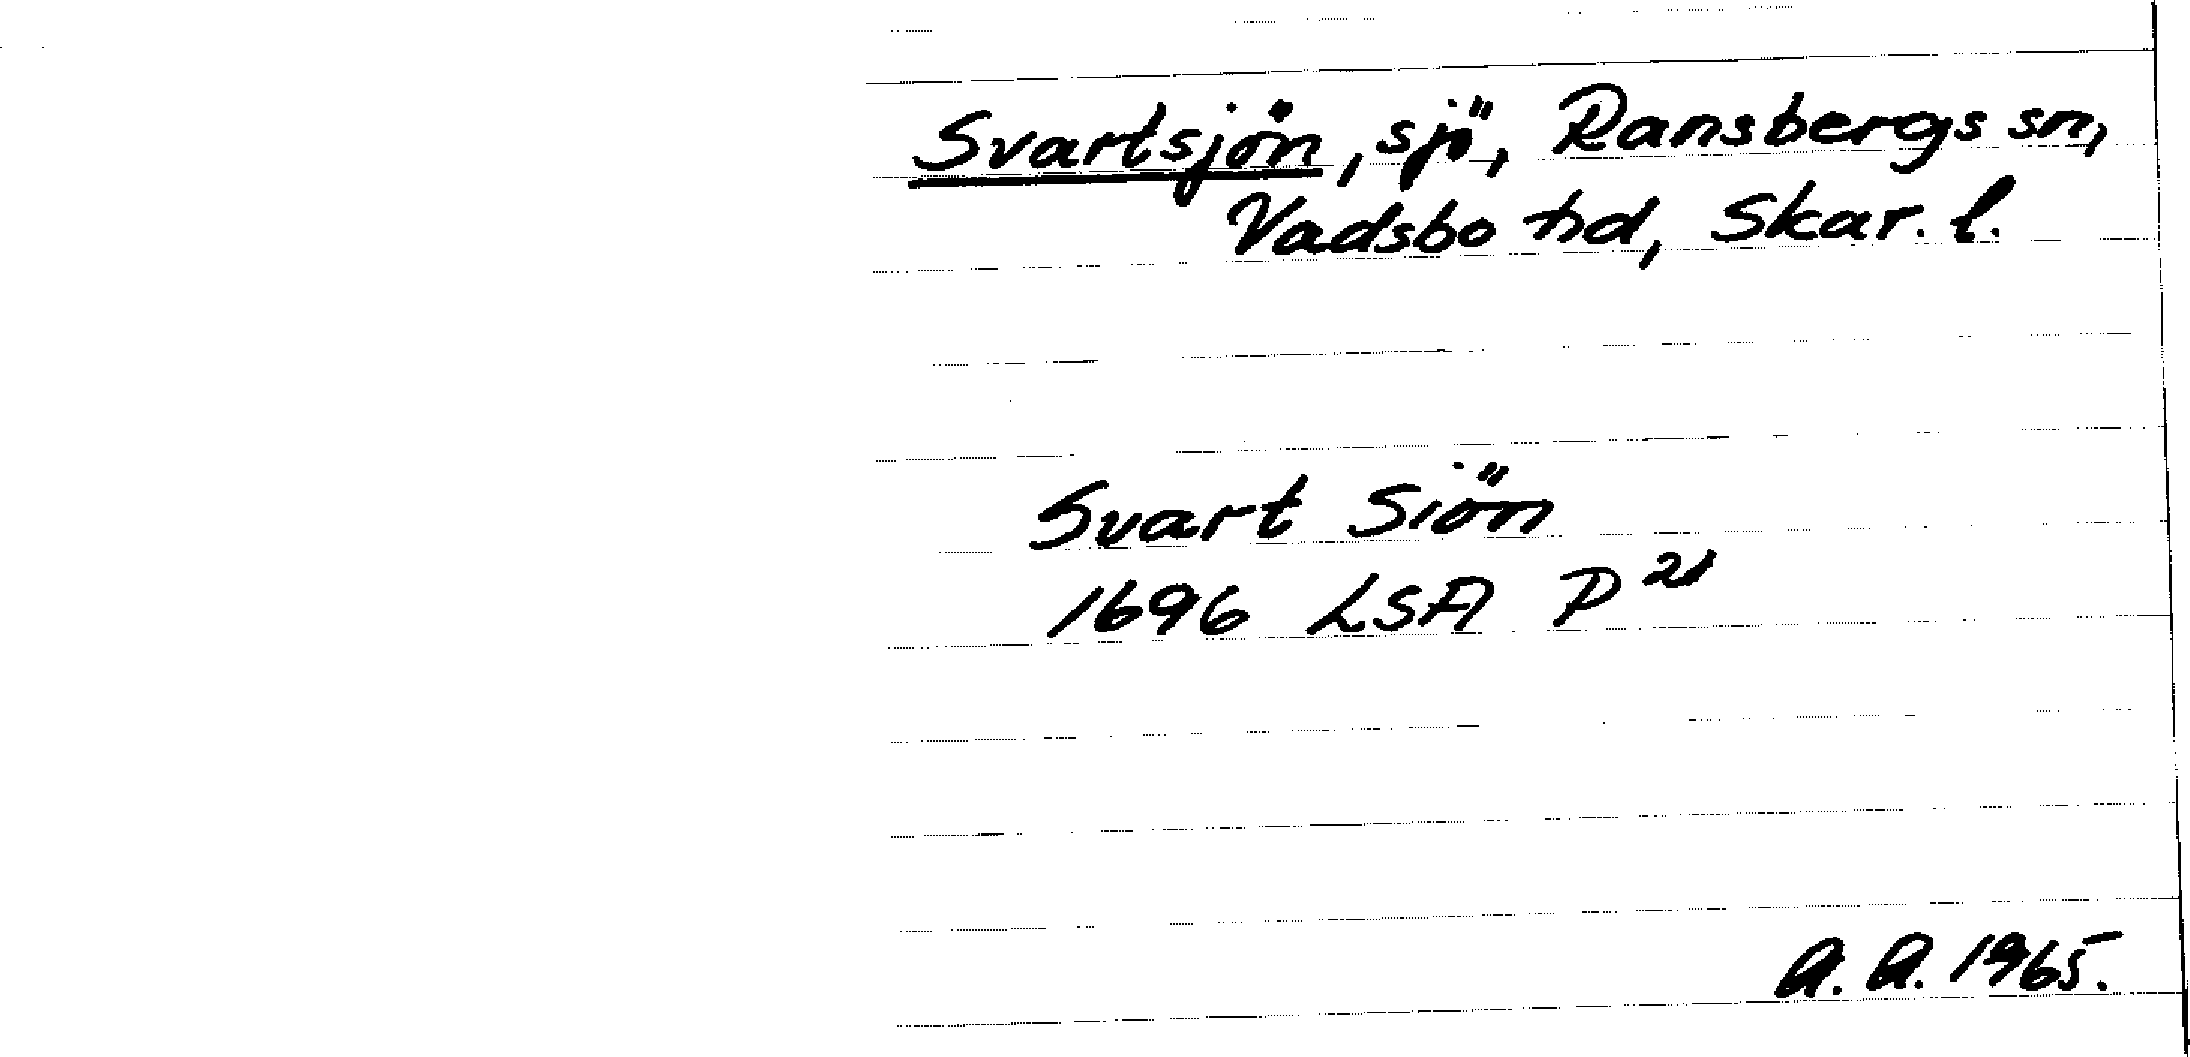 Svartsjön, sjö, Ransbergs sn,
Vadsbo hd, Skar. l.
Svart Siön
1696 LSA P 21
A. A. 1965.